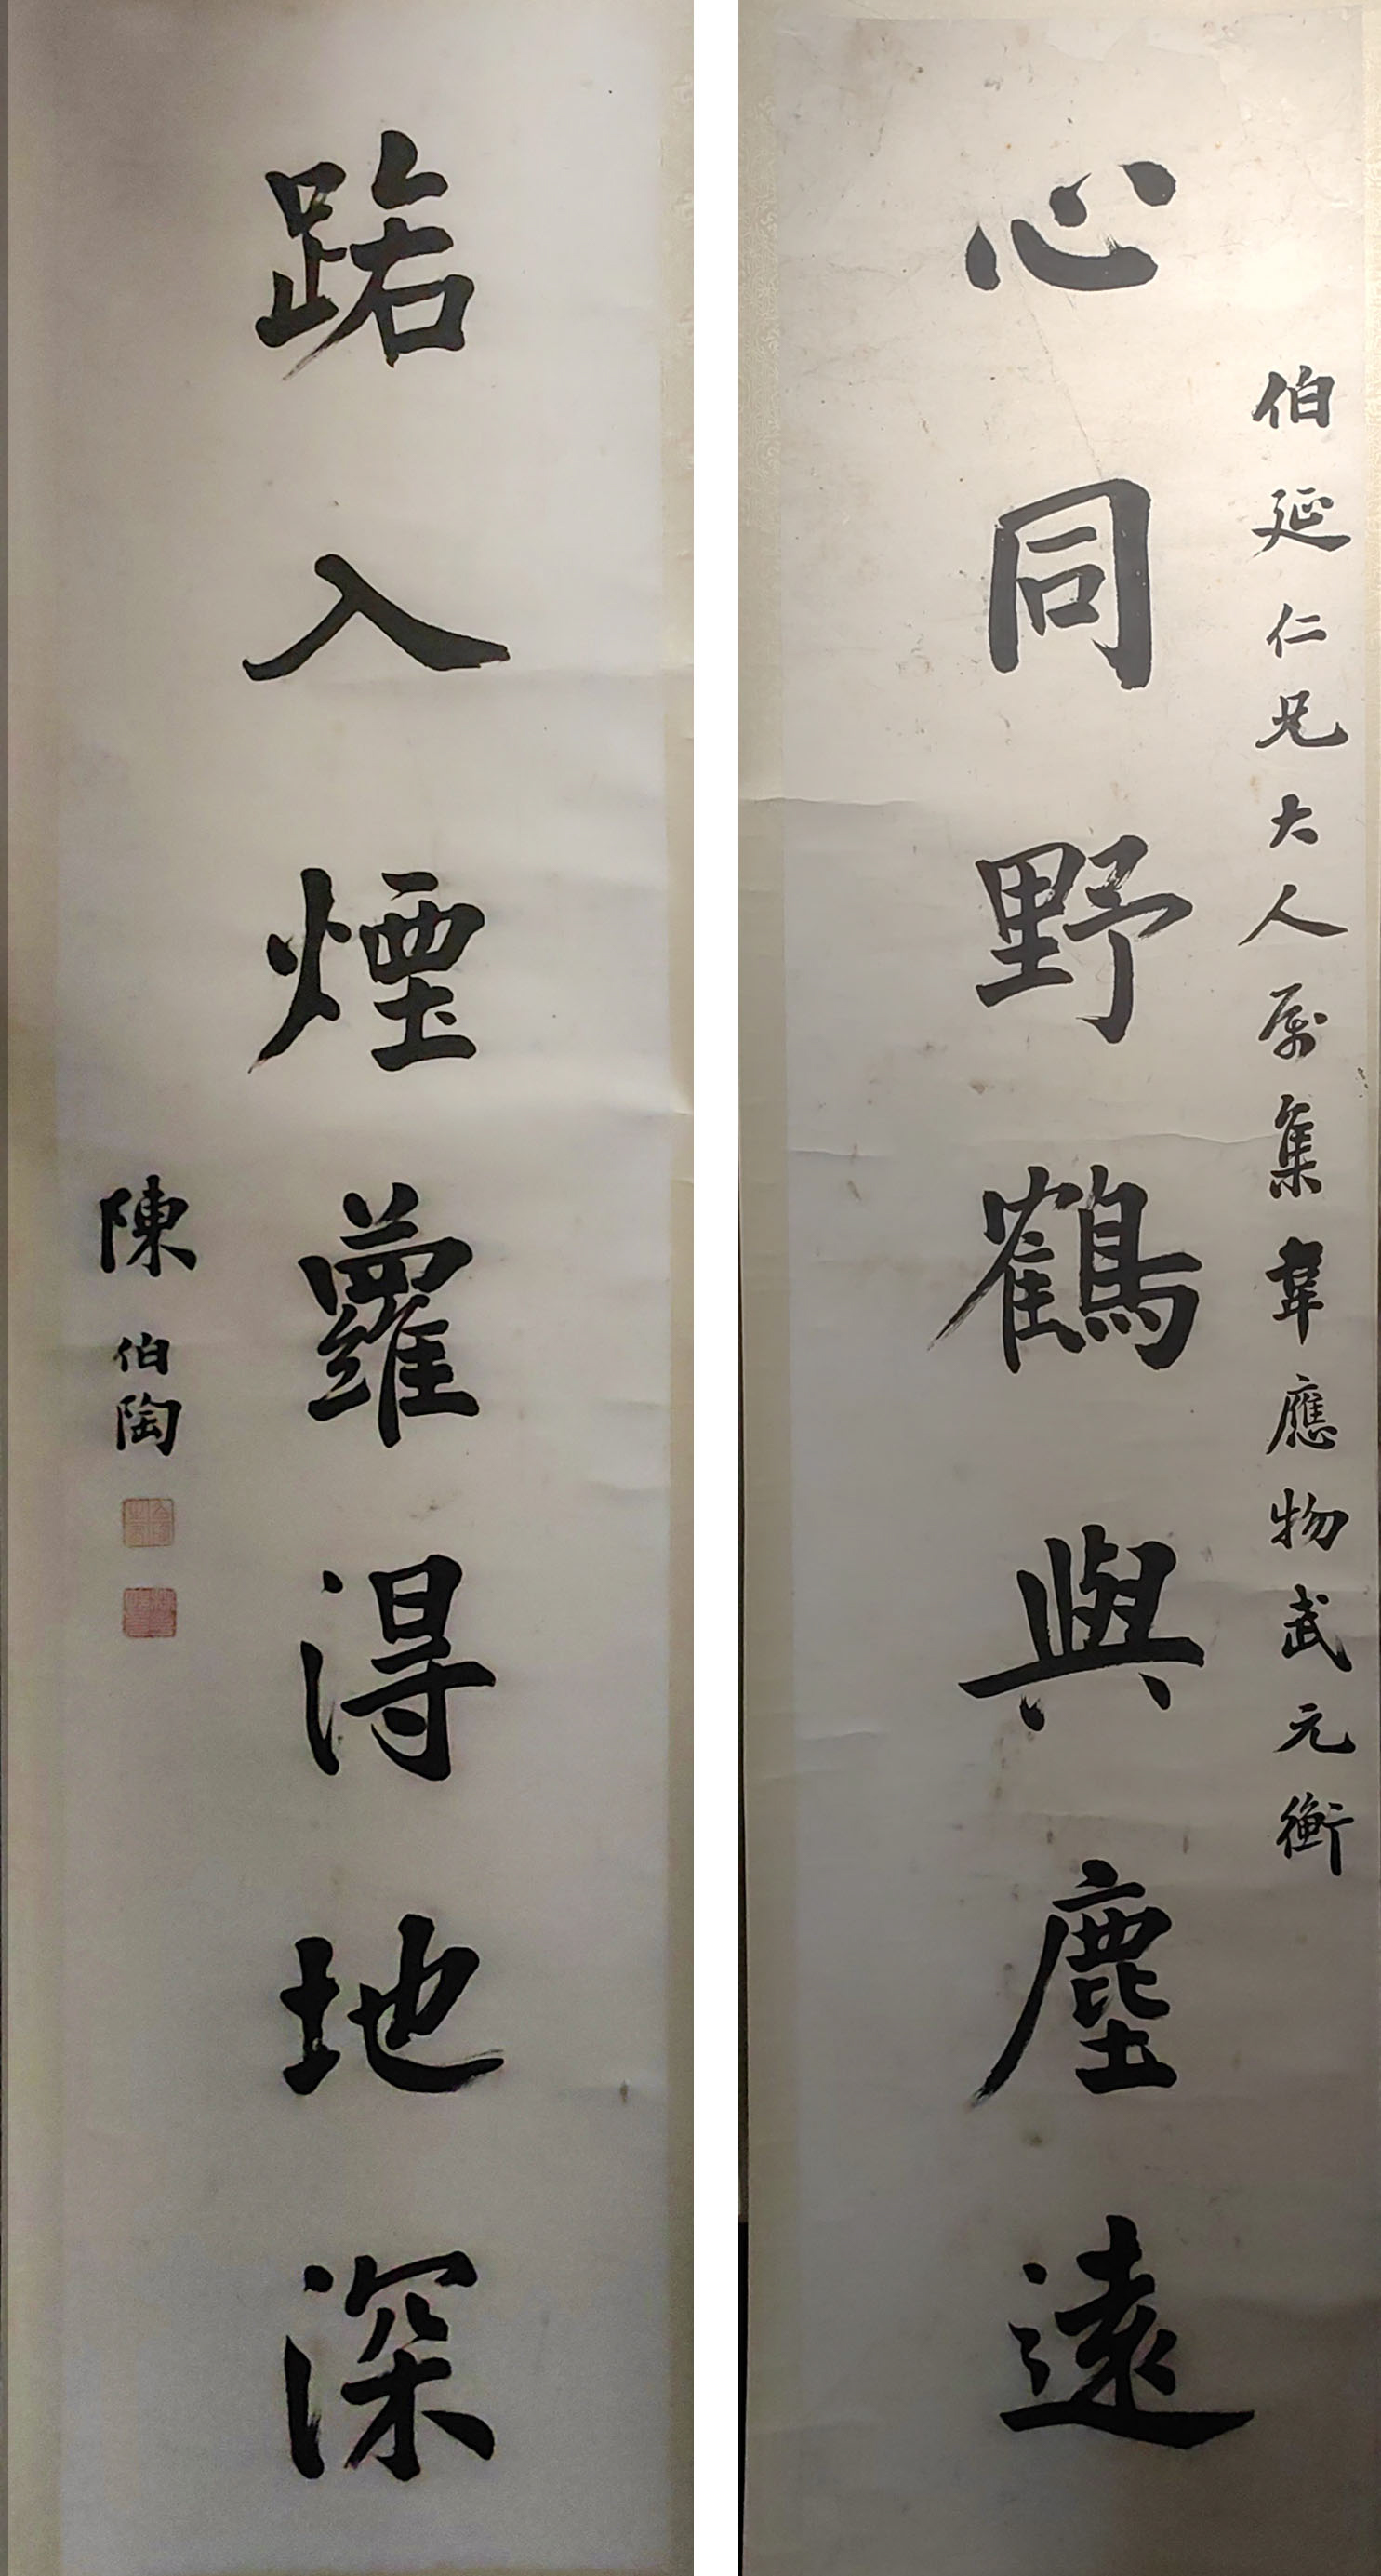 伯延仁兄大人属集韋應物武元衡
心同野鶴與塵遠
跡入煙蘿得地深
陳伯陶